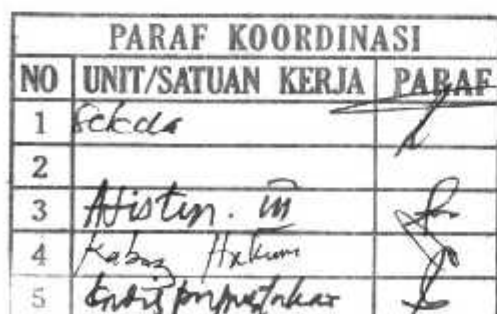 PARAF KOORDINASI
NO UNIT/SATUAN KERJA PARAF
1 Sekda
2
3 Asisten. III
4 Kabag Hukum
5